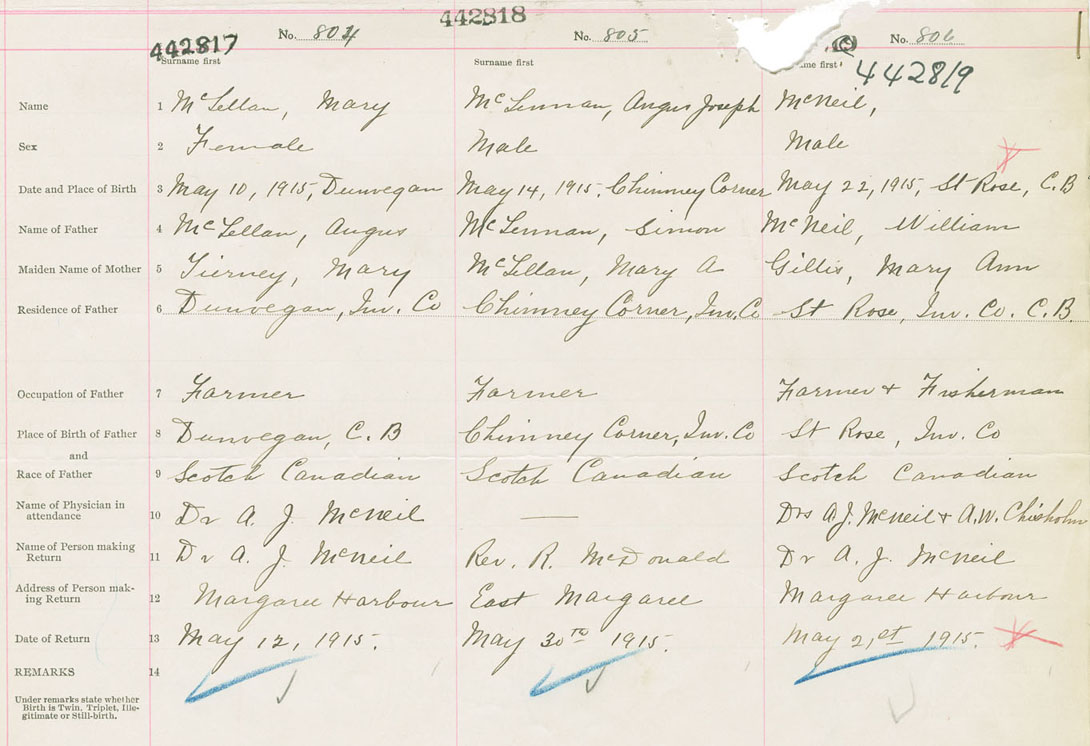 442818
442817 No. 804 No. 805 No. 806
Surname first Surname first me first
442819
Name 1 McLellan, Mary McLennan, Angus Joseph McNeil,
Sex 2 Female Male Male
Date and Place of Birth 3 May 10, 1915, Dunvegan May 14, 1915, Chimney Corner May 22, 1915, St Rose, C.B
Name of Father 4 McLellan, Angus McLennan, Simon McNeil, William
Maiden Name of Mother 5 Tierney, Mary McLellan, Mary A Gillis, Mary Ann
Residence of Father 6 Dunvegan, Inv. Co Chimney Corner, Inv. Co St Rose, Inv. Co. C.B.
Occupation of Father 7 Farmer Farmer Farmer + Fisherman
Place of Birth of Father 8 Dunvegan, C.B Chimney Corner, Inv. Co St Rose, Inv. Co
and
Race of Father 9 Scotch Canadian Scotch Canadian Scotch Canadian
Name of Physician in
attendance 10 Dr A. J. McNeil — Drs A.J. McNeil + A.W. Chisholm
Name of Person making
Return 11 Dr A. J. McNeil Rev. R. McDonald Dr A. J. McNeil
Address of Person mak-
ing Return 12 Margaree Harbour East Margaree Margaree Harbour
Date of Return 13 May 12, 1915. May 30th 1915. May 21st 1915.
REMARKS 14
Under remarks state whether
Birth is Twin, Triplet, Ille-
gitimate or Still-birth.